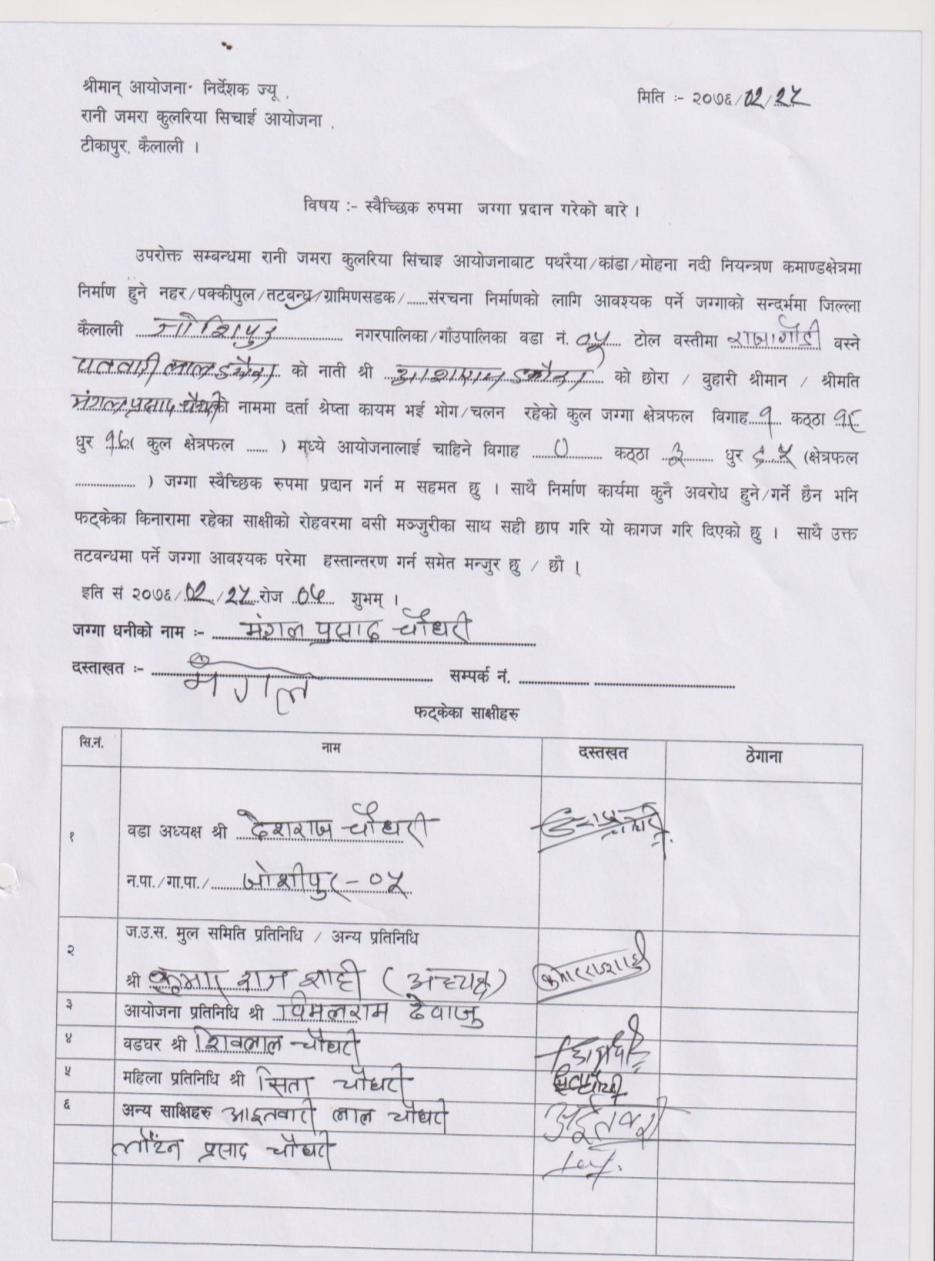 श्रीमान् आयोजना निर्देशक ज्यू ,
मिति :- २०७६/02/२५
रानी जमरा कुलरिया सिचाई आयोजना ,
टीकापुर, कैलाली ।
विषय :- स्वैच्छिक रुपमा जग्गा प्रदान गरेको बारे ।
उपरोक्त सम्बन्धमा रानी जमरा कुलरिया सिंचाइ आयोजनाबाट पथरैया/कांडा/मोहना नदी नियन्त्रण कमाण्डक्षेत्रमा
निर्माण हुने नहर/पक्कीपुल/तटबन्ध/ग्रामिणसडक/......संरचना निर्माणको लागि आवश्यक पर्ने जग्गाको सन्दर्भमा जिल्ला
कैलाली जोशिपुर नगरपालिका/गाँउपालिका वडा नं. ०५ टोल वस्तीमा वस्ने
को नाती श्री को छोरा / वुहारी श्रीमान / श्रीमति
मंगल प्रसाद चौधरी को नाममा दर्ता श्रेष्ता कायम भई भोग/चलन रहेको कुल जग्गा क्षेत्रफल विगाह १ कठ्ठा १८
धुर १६( कुल क्षेत्रफल ...... ) मध्ये आयोजनालाई चाहिने विगाह 0 कठ्ठा ३ धुर (क्षेत्रफल
................ ) जग्गा स्वैच्छिक रुपमा प्रदान गर्न म सहमत छु । साथै निर्माण कार्यमा कुनै अवरोध हुने/गर्ने छैन भनि
फट्केका किनारामा रहेका साक्षीको रोहवरमा वसी मञ्जुरीका साथ सही छाप गरि यो कागज गरि दिएको छु । साथै उक्त
तटवन्धमा पर्ने जग्गा आवश्यक परेमा हस्तान्तरण गर्न समेत मन्जुर छु / छौ ।
इति सं २०७६/02/२५ रोज 0५ शुभम् ।
जग्गा धनीको नाम :- मंगल प्रसाद चौधरी
दस्ताखत :- मंगल सम्पर्क नं. ................ ................................
फट्केका साक्षीहरु
सि.नं. नाम दस्तखत ठेगाना
१ वडा अध्यक्ष श्री देशराज चौधरी
न.पा./गा.पा./ जोशीपुर - ०५
२ ज.उ.स. मुल समिति प्रतिनिधि / अन्य प्रतिनिधि
श्री कुमार राज शाही (अध्यक्ष)
३ आयोजना प्रतिनिधि श्री विमलराम देवाजु
४ वडघर श्री शिवलाल चौधरी
५ महिला प्रतिनिधि श्री सिता चौधरी
६ अन्य साक्षिहरु आइतवारी लाल चौधरी
प्रसाद चौधरी